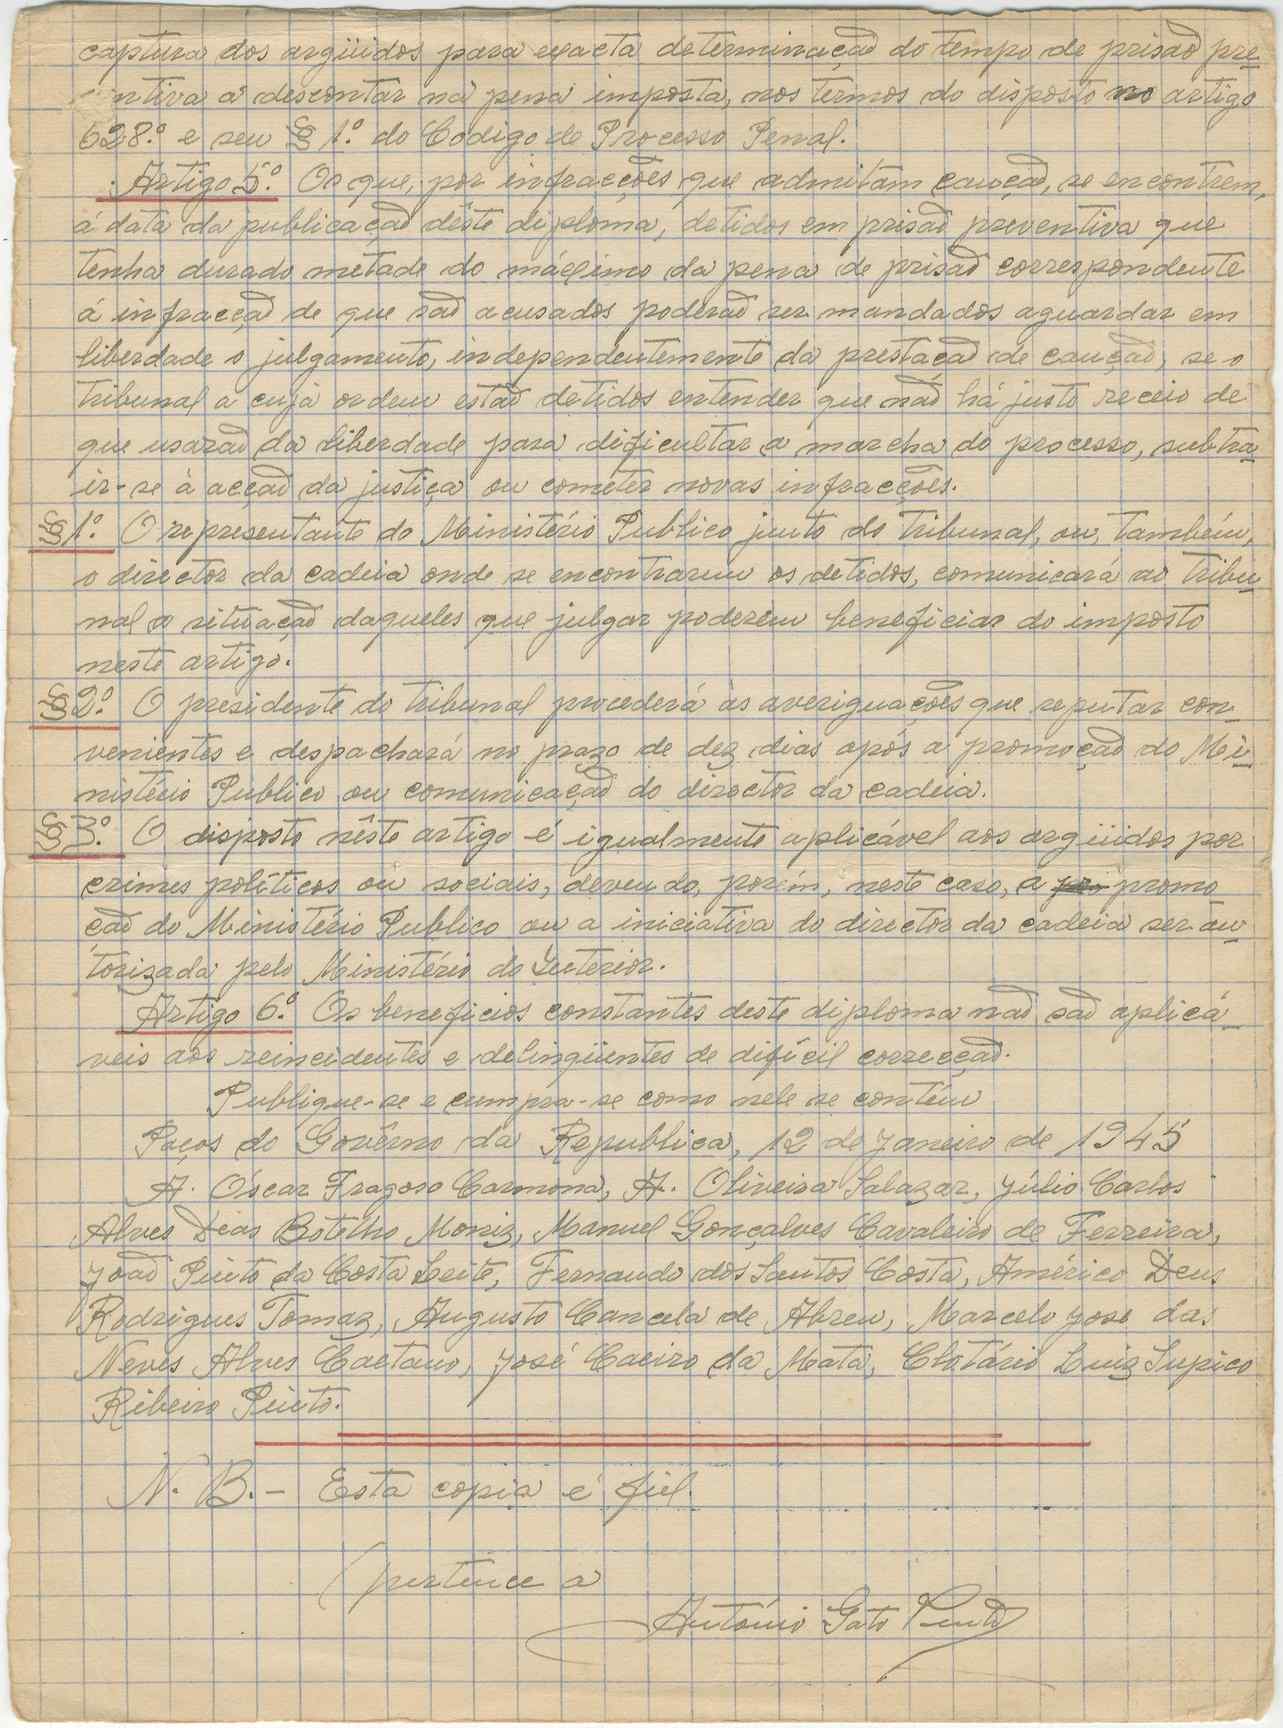 captura dos argüidos para exacta determinação do tempo de prisão pre-
ntiva a descontar na pena imposta, nos termos do disposto no artigo
628.º e seu § 1.º do Codigo de Processo Penal.
Artigo 5.º Os que, por infracções que admitam caução, se encontrem,
á data da publicação dêste diploma, detidos em prisão preventiva que
tenha durado metade do máximo da pena de prisão correspondente
á infracção de que são acusados poderão ser mandados aguardar em
liberdade o julgamento, independentemente da prestação de caução, se o
tribunal a cuja ordem estão detidos entender que não há justo receio de
que usarão da liberdade para dificultar a marcha do processo, subtra-
ir-se à acção da justiça ou cometer novas infracções.
§ 1.º O representante do Ministério Publico junto do tribunal, ou, também,
o director da cadeia onde se encontrarem os detidos, comunicará ao tribu-
nal a situação daqueles que julgar poderem beneficiar do imposto
neste artigo.
§ 2.º O presidente do tribunal procederá às averiguações que reputar con-
venientes e despachará no prazo de dez dias após a promoção do Mi-
nistério Publico ou comunicação do director da cadeia.
§ 3.º O disposto nêste artigo é igualmente aplicável aos argüidos por
crimes políticos ou sociais, devendo, porém, neste caso, a promo
ção do Ministério Publico ou a iniciativa do director da cadeia ser au-
torizada pelo Ministério do Interior.
Artigo 6.º Os beneficios constantes deste diploma não são aplicá-
veis aos reincidentes e delinqüentes de difícil correcção.
Publique-se e cumpra-se como nele se contém
Paços do Govêrno da Republica, 12 de Janeiro de 1945
A. Óscar Fragoso Carmona, A. Oliveira Salazar, Júlio Carlos
Alves Dias Botelho Moniz, Manuel Gonçalves Cavaleiro de Ferreira,
João Pinto da Costa Leite, Fernando dos Santos Costa, Américo Deus
Rodrigues Tomaz, Augusto Cancela de Abreu, Marcelo José das
Neves Alves Caetano, José Caeiro da Mata, Clotário Luiz Supico
Ribeiro Pinto.
N. B. - Esta copia é fiel.
(pertence a
António Gato Pinto